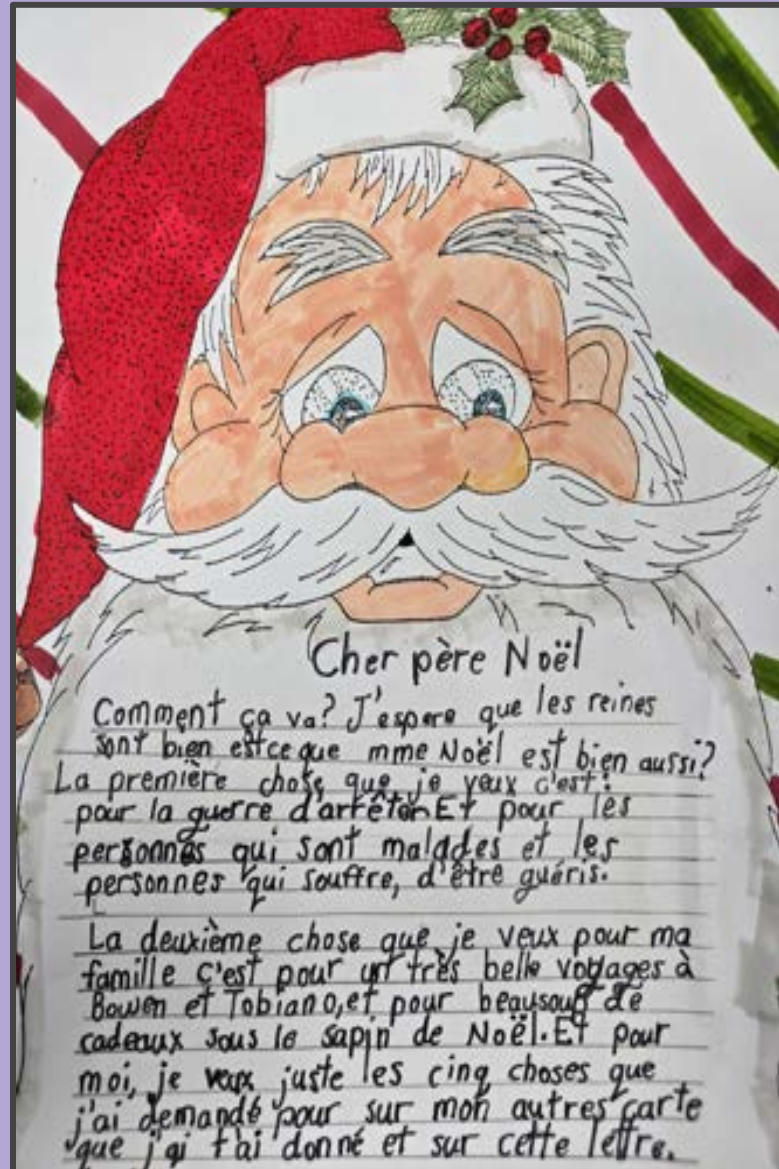 Cher père Noël
Comment ça va? J'espere que les reines
sont bien estceque mme Noël est bien aussi?
La première chose que je veux c'est:
pour la guerre d'arrêter. Et pour les
personnes qui sont malades et les
personnes qui souffre, d'être guéris.
La deuxième chose que je veux pour ma
famille c'est pour un très belle voyages à
Bowen et Tobiano, et pour beausoup de
cadeaux sous le sapin de Noël. Et pour
moi, je veux juste les cinq choses que
j'ai demandé pour sur mon autres carte
que j'ai t'ai donné et sur cette lettre.